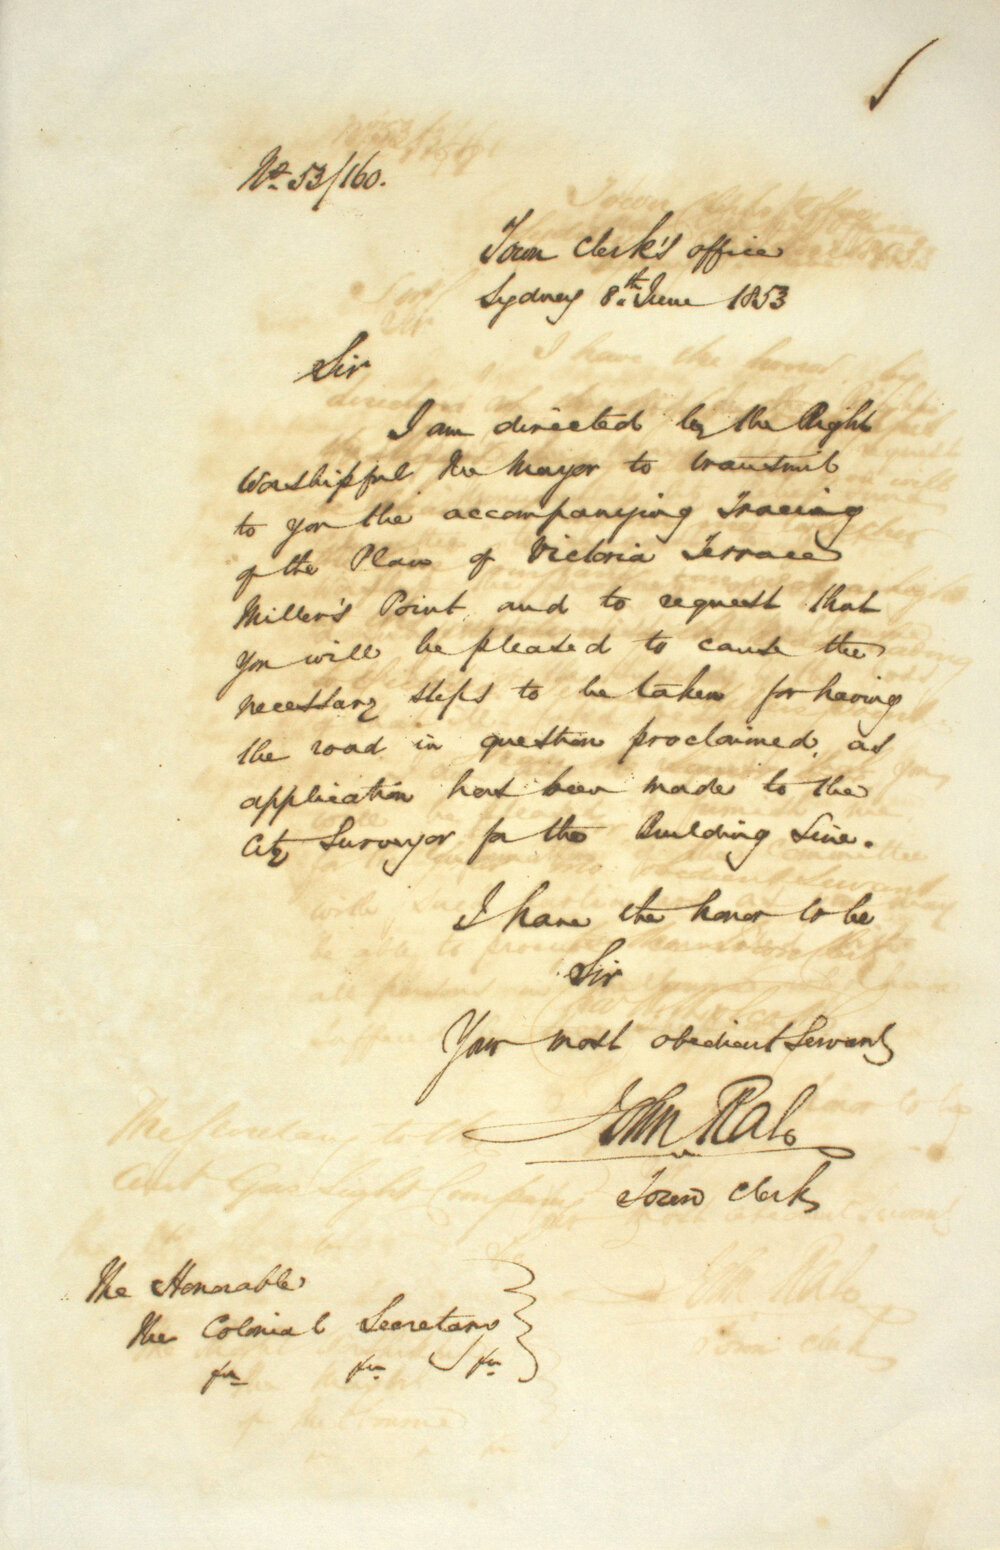 No. 53/160.
Town Clerk's office
Sydney 8th. June 1853
Sir
I am directed by the Right
Worshipful the Mayor to transmit
to you the accompanying Tracing
of the Plan of Victoria Terrace
Miller's Point, and to request that
you will be pleased to cause the
necessary steps to be taken for having
the road in question proclaimed, as
application has been made to the
City Surveyor for the Building Line.
I have the honor to be
Sir
Your most obedient Servant
John Rae
Town Clerk
The Honorable
The Colonial Secretary